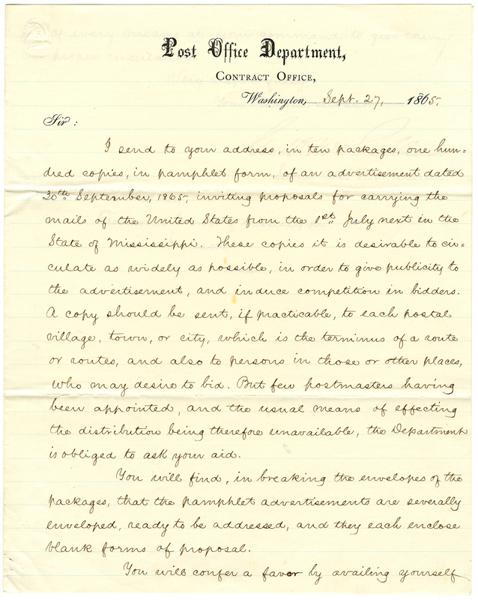 Post Office Department,
Contract Office,
Washington, Sept. 27, 1865.
Sir:
I send to your address, in ten packages, one hun-
dred copies, in pamphlet form, of an advertisement dated
30th September, 1865, inviting proposals for carrying the
mails of the United States from the 1st July next in the
State of Mississippi. These copies it is desirable to cir-
culate as widely as possible, in order to give publicity to
the advertisement, and induce competition in bidders.
A copy should be sent, if practicable, to each postal
village, town, or city, which is the terminus of a route
or routes, and also to persons in those or other places,
who may desire to bid. But few postmasters having
been appointed, and the usual means of effecting
the distribution being therefore unavailable, the Department
is obliged to ask your aid.
You will find, in breaking the envelopes of the
packages, that the pamphlet advertisements are severally
enveloped, ready to be addressed, and they each enclose
blank forms of proposal.
You will confer a favor by availing yourself